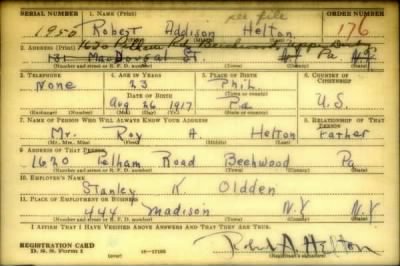 see file
SERIAL NUMBER 1. NAME (Print) ORDER NUMBER
1950 Robert Addison Helton 176
1620 Pelham Rd. Beechwood
2. ADDRESS (Print) Pa
131 MacDougal St. N.Y. N.Y.
(Number and street or R. F. D. number) (Town) (County) (State)
3. TELEPHONE 4. AGE IN YEARS 5. PLACE OF BIRTH 6. COUNTRY OF CITIZENSHIP
None 23 Phil
DATE OF BIRTH (Town or county)
Aug 26 1917 Pa U.S.
(Exchange) (Number) (Mo.) (Day) (Yr.) (State or country)
7. NAME OF PERSON WHO WILL ALWAYS KNOW YOUR ADDRESS 8. RELATIONSHIP OF THAT PERSON
Mr. Roy A. Helton Father
(Mr., Mrs., Miss) (First) (Middle) (Last)
9. ADDRESS OF THAT PERSON
1620 Pelham Road Beechwood Pa
(Number and street or R. F. D. number) (Town) (County) (State)
10. EMPLOYER'S NAME
Stanley K. Oldden
11. PLACE OF EMPLOYMENT OR BUSINESS
444 Madison N.Y N.Y
(Number and street or R. F. D. number) (Town) (County) (State)
I AFFIRM THAT I HAVE VERIFIED ABOVE ANSWERS AND THAT THEY ARE TRUE.
REGISTRATION CARD
D. S. S. Form 1 (over) 16—17105 (Registrant's signature)
Robert A Helton